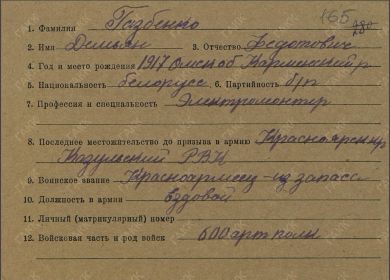 165
280
1. Фамилия Газбенко
2. Имя Демьян 3. Отчество Федотович
4. Год и место рождения 1917 Омск об
5. Национальность белорусс 6. Партийность б/п
7. Профессия и специальность Электромонтир
8. Последнее местожительство до призыва в армию Красноярск кр
РВК
9. Воинское звание Красноармеец из запаса
10. Должность в армии ездовой
11. Личный (матрикулярный) номер
12. Войсковая часть и род войск 600 арт полк